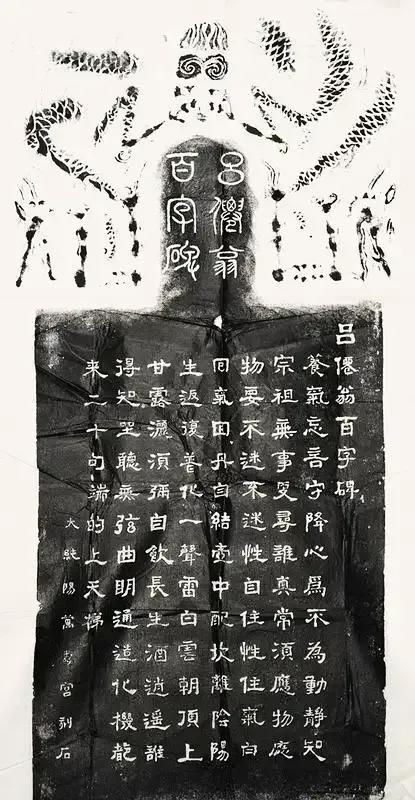 呂僊翁
百字碑
呂僊翁百字碑
養氣忘言守降心爲不為動靜知
宗祖無事更尋誰真常須應物應
物要不迷不迷性自住性住氣自
回氣回丹自結壺中配坎離陰陽
生返復普化一聲雷白雲朝頂上
甘露灑須彌自飲長生酒逍遙誰
得知坐聽無弦曲明通造化機都
來二十句端的上天梯
大純陽萬壽宮刻石